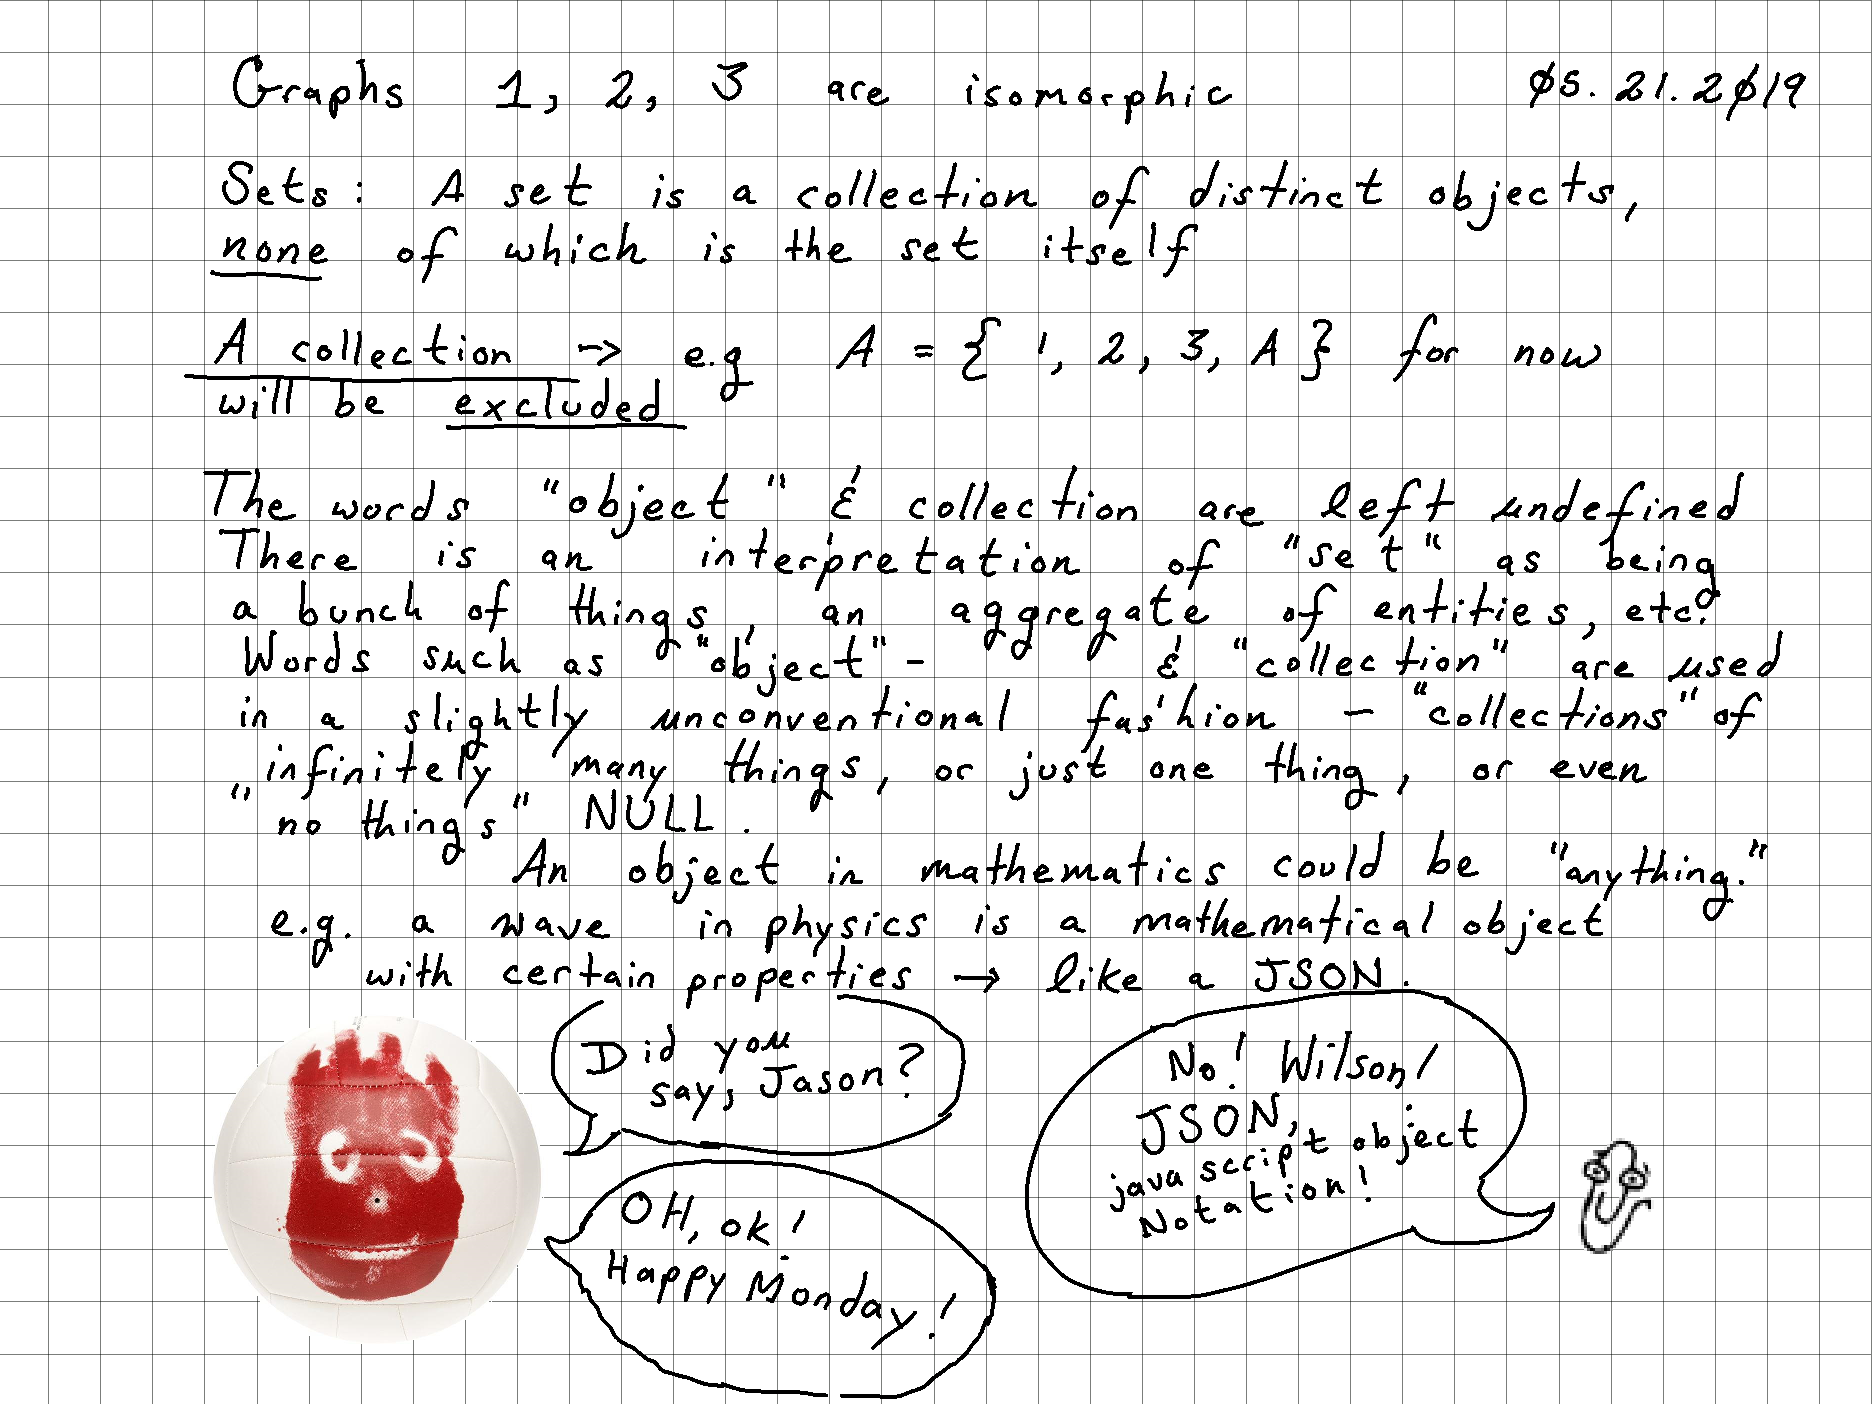 Graphs 1, 2, 3 are isomorphic
05.21.2019
Sets: A set is a collection of distinct objects,
none of which is the set itself
A collection → e.g A = { 1, 2, 3, A } for now
will be excluded
The words "object" & collection are left undefined
There is an interpretation of "set" as being
a bunch of things, an aggregate of entities, etc.
Words such as "object" - & "collection" are used
in a slightly unconventional fashion - "collections" of
infinitely many things, or just one thing, or even
"no things" NULL.
An object in mathematics could be "anything."
e.g. a wave in physics is a mathematical object
with certain properties → like a JSON.
Did you
say, Jason?
No! Wilson!
JSON,
java script object
Notation!
OH, ok!
Happy Monday!